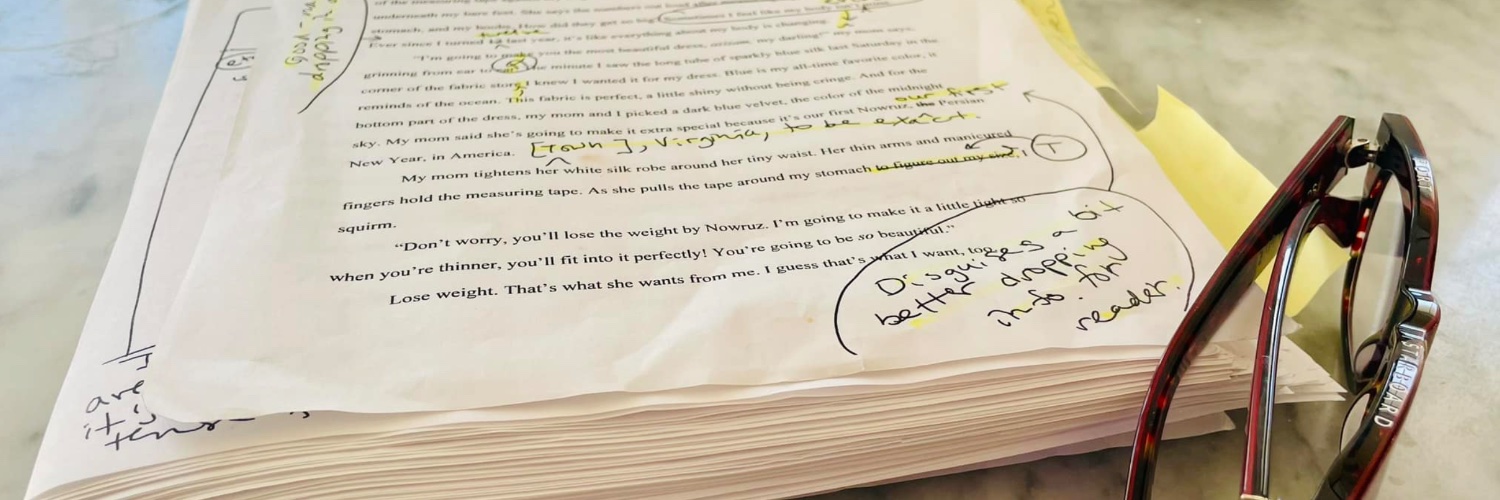 of the measuring tape
underneath my bare feet. She says the numbers out loud after
stomach, and my boobs. How did they get so big? Sometimes I feel like my body
twelve
Ever since I turned 12 last year, it's like everything about my body is changing.
"I'm going to make you the most beautiful dress, azizam, my darling!" my mom says,
grinning from ear to The minute I saw the long tube of sparkly blue silk last Saturday in the
corner of the fabric store, I knew I wanted it for my dress. Blue is my all-time favorite color, it
reminds of the ocean. This fabric is perfect, a little shiny without being cringe. And for the
bottom part of the dress, my mom and I picked a dark blue velvet, the color of the midnight
our first
sky. My mom said she's going to make it extra special because it's our first Nowruz, the Persian
New Year, in America. [Town], Virginia, to be exact.
My mom tightens her white silk robe around her tiny waist. Her thin arms and manicured
fingers hold the measuring tape. As she pulls the tape around my stomach to figure out my size, I
T
squirm.
"Don't worry, you'll lose the weight by Nowruz. I'm going to make it a little tight so
when you're thinner, you'll fit into it perfectly! You're going to be so beautiful."
Lose weight. That's what she wants from me. I guess that's what I want, too.
Disguises a bit
better dropping
info. for
reader.
are
it is
tense
STARBOARD